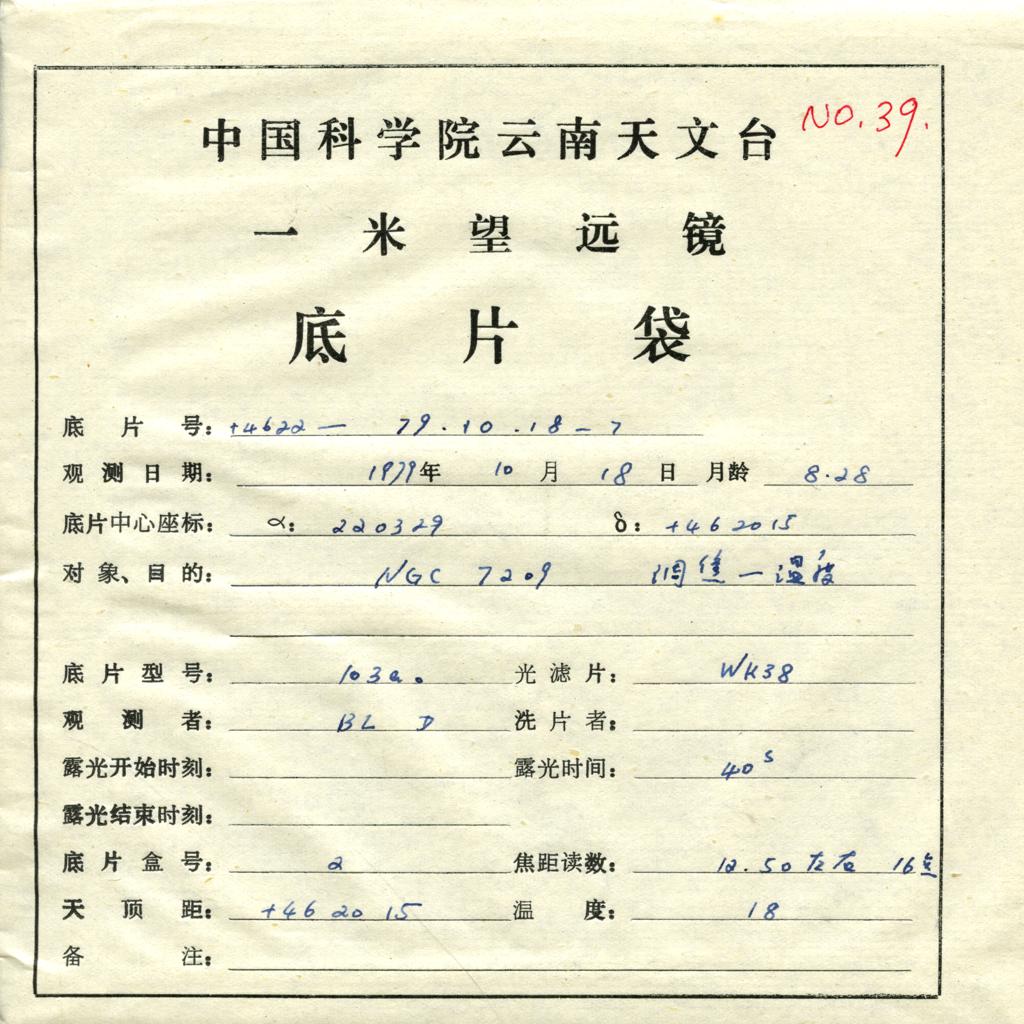 中国科学院云南天文台 NO.39.
一米望远镜
底片袋
底片号: +4622 — 79.10.18-7
观测日期: 1979年 10月 18日 月龄 8.28
底片中心座标: α: 220329 δ: +462015
对象、目的: NGC 7209 调焦—温度
底片型号: 103a. 光滤片: WH38
观测者: BL D 洗片者:
露光开始时刻: 露光时间: 40s
露光结束时刻:
底片盒号: 2 焦距读数: 12.50左右 16点
天顶距: +46 20 15 温度: 18
备注: